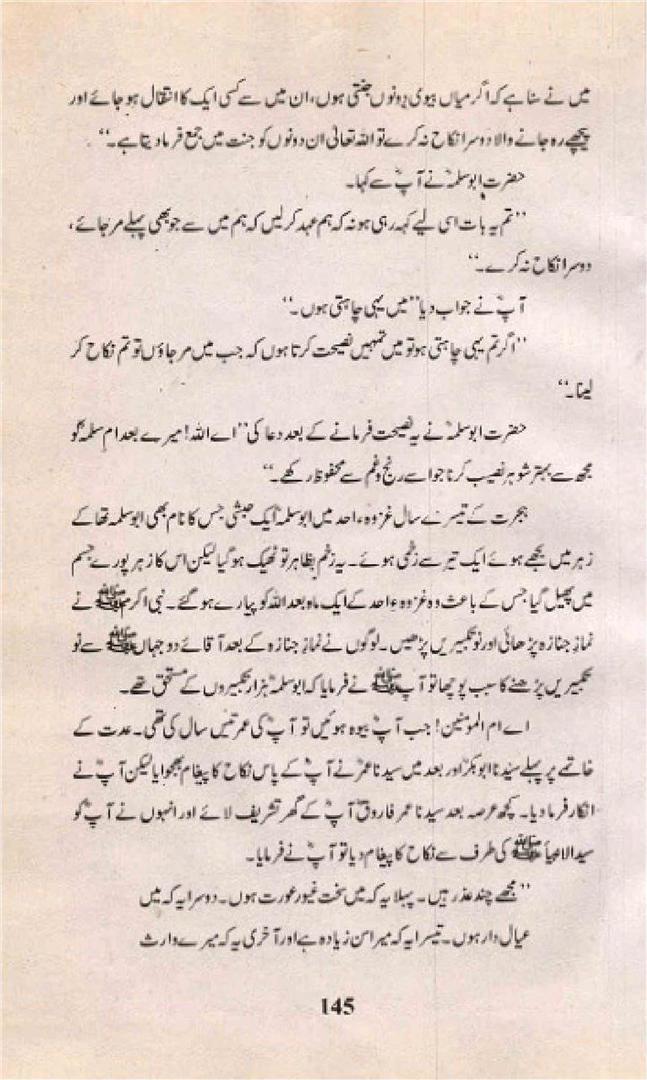 میں نے سنا ہے کہ اگر میاں بیوی دونوں جنتی ہوں، ان میں سے کسی ایک کا انتقال ہو جائے اور
پیچھے رہ جانے والا دوسرا نکاح نہ کرے تو اللہ تعالیٰ ان دونوں کو جنت میں جمع فرما دیتا ہے۔‘‘
حضرت ابو سلمہؓ نے آپؓ سے کہا۔
’’تم یہ بات اسی لیے کہہ رہی ہو نہ کہ ہم عہد کر لیں کہ ہم میں سے جو بھی پہلے مر جائے،
دوسرا نکاح نہ کرے۔‘‘
آپؓ نے جواب دیا ’’میں یہی چاہتی ہوں۔‘‘
’’اگر تم یہی چاہتی ہو تو میں تمہیں نصیحت کرتا ہوں کہ جب میں مر جاؤں تو تم نکاح کر
لینا۔‘‘
حضرت ابو سلمہؓ نے یہ نصیحت فرمانے کے بعد دعا کی ’’اے اللہ! میرے بعد ام سلمہؓ کو
مجھ سے بہتر شوہر نصیب کرنا جو اسے رنج و غم سے محفوظ رکھے۔‘‘
ہجرت کے تیسرے سال غزوہء احد میں ابو سلمہؓ ایک حبشی جس کا نام بھی ابو سلمہ تھا کے
زہر میں بجھے ہوئے ایک تیر سے زخمی ہوئے۔ یہ زخم بظاہر تو ٹھیک ہو گیا لیکن اس کا زہر پورے جسم
میں پھیل گیا جس کے باعث وہ غزوہ ءاحد کے ایک ماہ بعد اللہ کو پیارے ہو گئے۔ نبی اکرم ﷺ نے
نماز جنازہ پڑھائی اور نو تکبیریں پڑھیں۔ لوگوں نے نماز جنازہ کے بعد آقائے دو جہاں ﷺ سے نو
تکبیریں پڑھنے کا سبب پوچھا تو آپ ﷺ نے فرمایا کہ ابو سلمہؓ ہزار تکبیروں کے مستحق تھے۔
اے ام المومنین! جب آپؓ بیوہ ہوئیں تو آپؓ کی عمر تیس سال کی تھی۔ عدت کے
خاتمے پر پہلے سیدنا ابو بکرؓ اور بعد میں سیدنا عمرؓ نے آپؓ کے پاس نکاح کا پیغام بھجوایا لیکن آپؓ نے
انکار فرما دیا۔ کچھ عرصہ بعد سیدنا عمر فاروقؓ آپؓ کے گھر تشریف لائے اور انہوں نے آپؓ کو
سید الانبیاؐ ﷺ کی طرف سے نکاح کا پیغام دیا تو آپؓ نے فرمایا۔
’’مجھے چند عذر ہیں۔ پہلا یہ کہ میں سخت غیور عورت ہوں۔ دوسرا یہ کہ میں
عیال دار ہوں۔ تیسرا یہ کہ میرا سن زیادہ ہے اور آخری یہ کہ میرے وارث
145